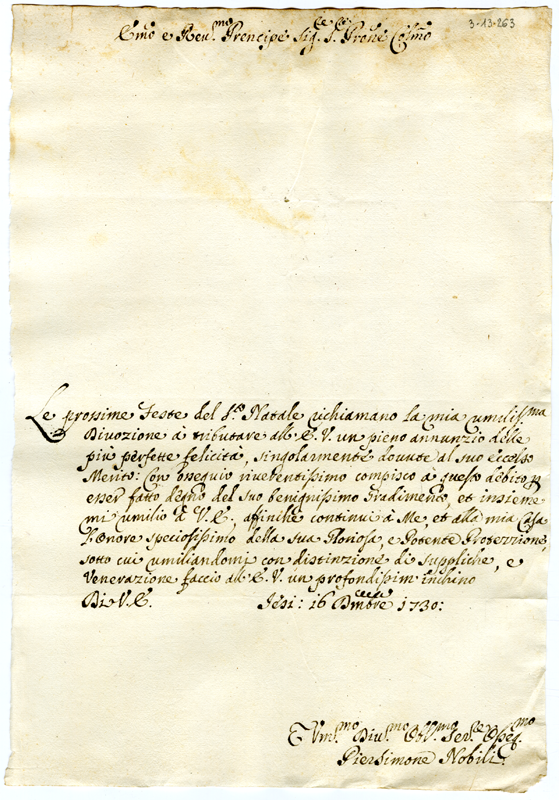 3-13-263
Emo e Reu.mo Prencipe Sig.r P.rone Colmo
Le prossime Feste del S.to Natale richiamano la mia umilissma
Divozione à tributare all'E.V. un pieno annunzio delle
più perfette felicità, singolarmente dovute al suo eccelso
Merito: Con ossequio riverentissimo compisco à questo debito, p
esser fatto degno del suo benignissimo Gradimento, et insieme
mi umilio à V.E., affinche continui à Me, et alla mia Casa
l'Onore speciosissimo della sua Gloriosa, e Potente Protezzione,
sotto cui umiliandomi con distinzione di suppliche, e
Venerazione faccio all'E.V. un profondissim inchino
Di V.E. Jesi: 16 Dmbre 1730:
Vm.mo Diu.mo Obl.mo Ser.re Osseq.mo
PierSimone Nobili